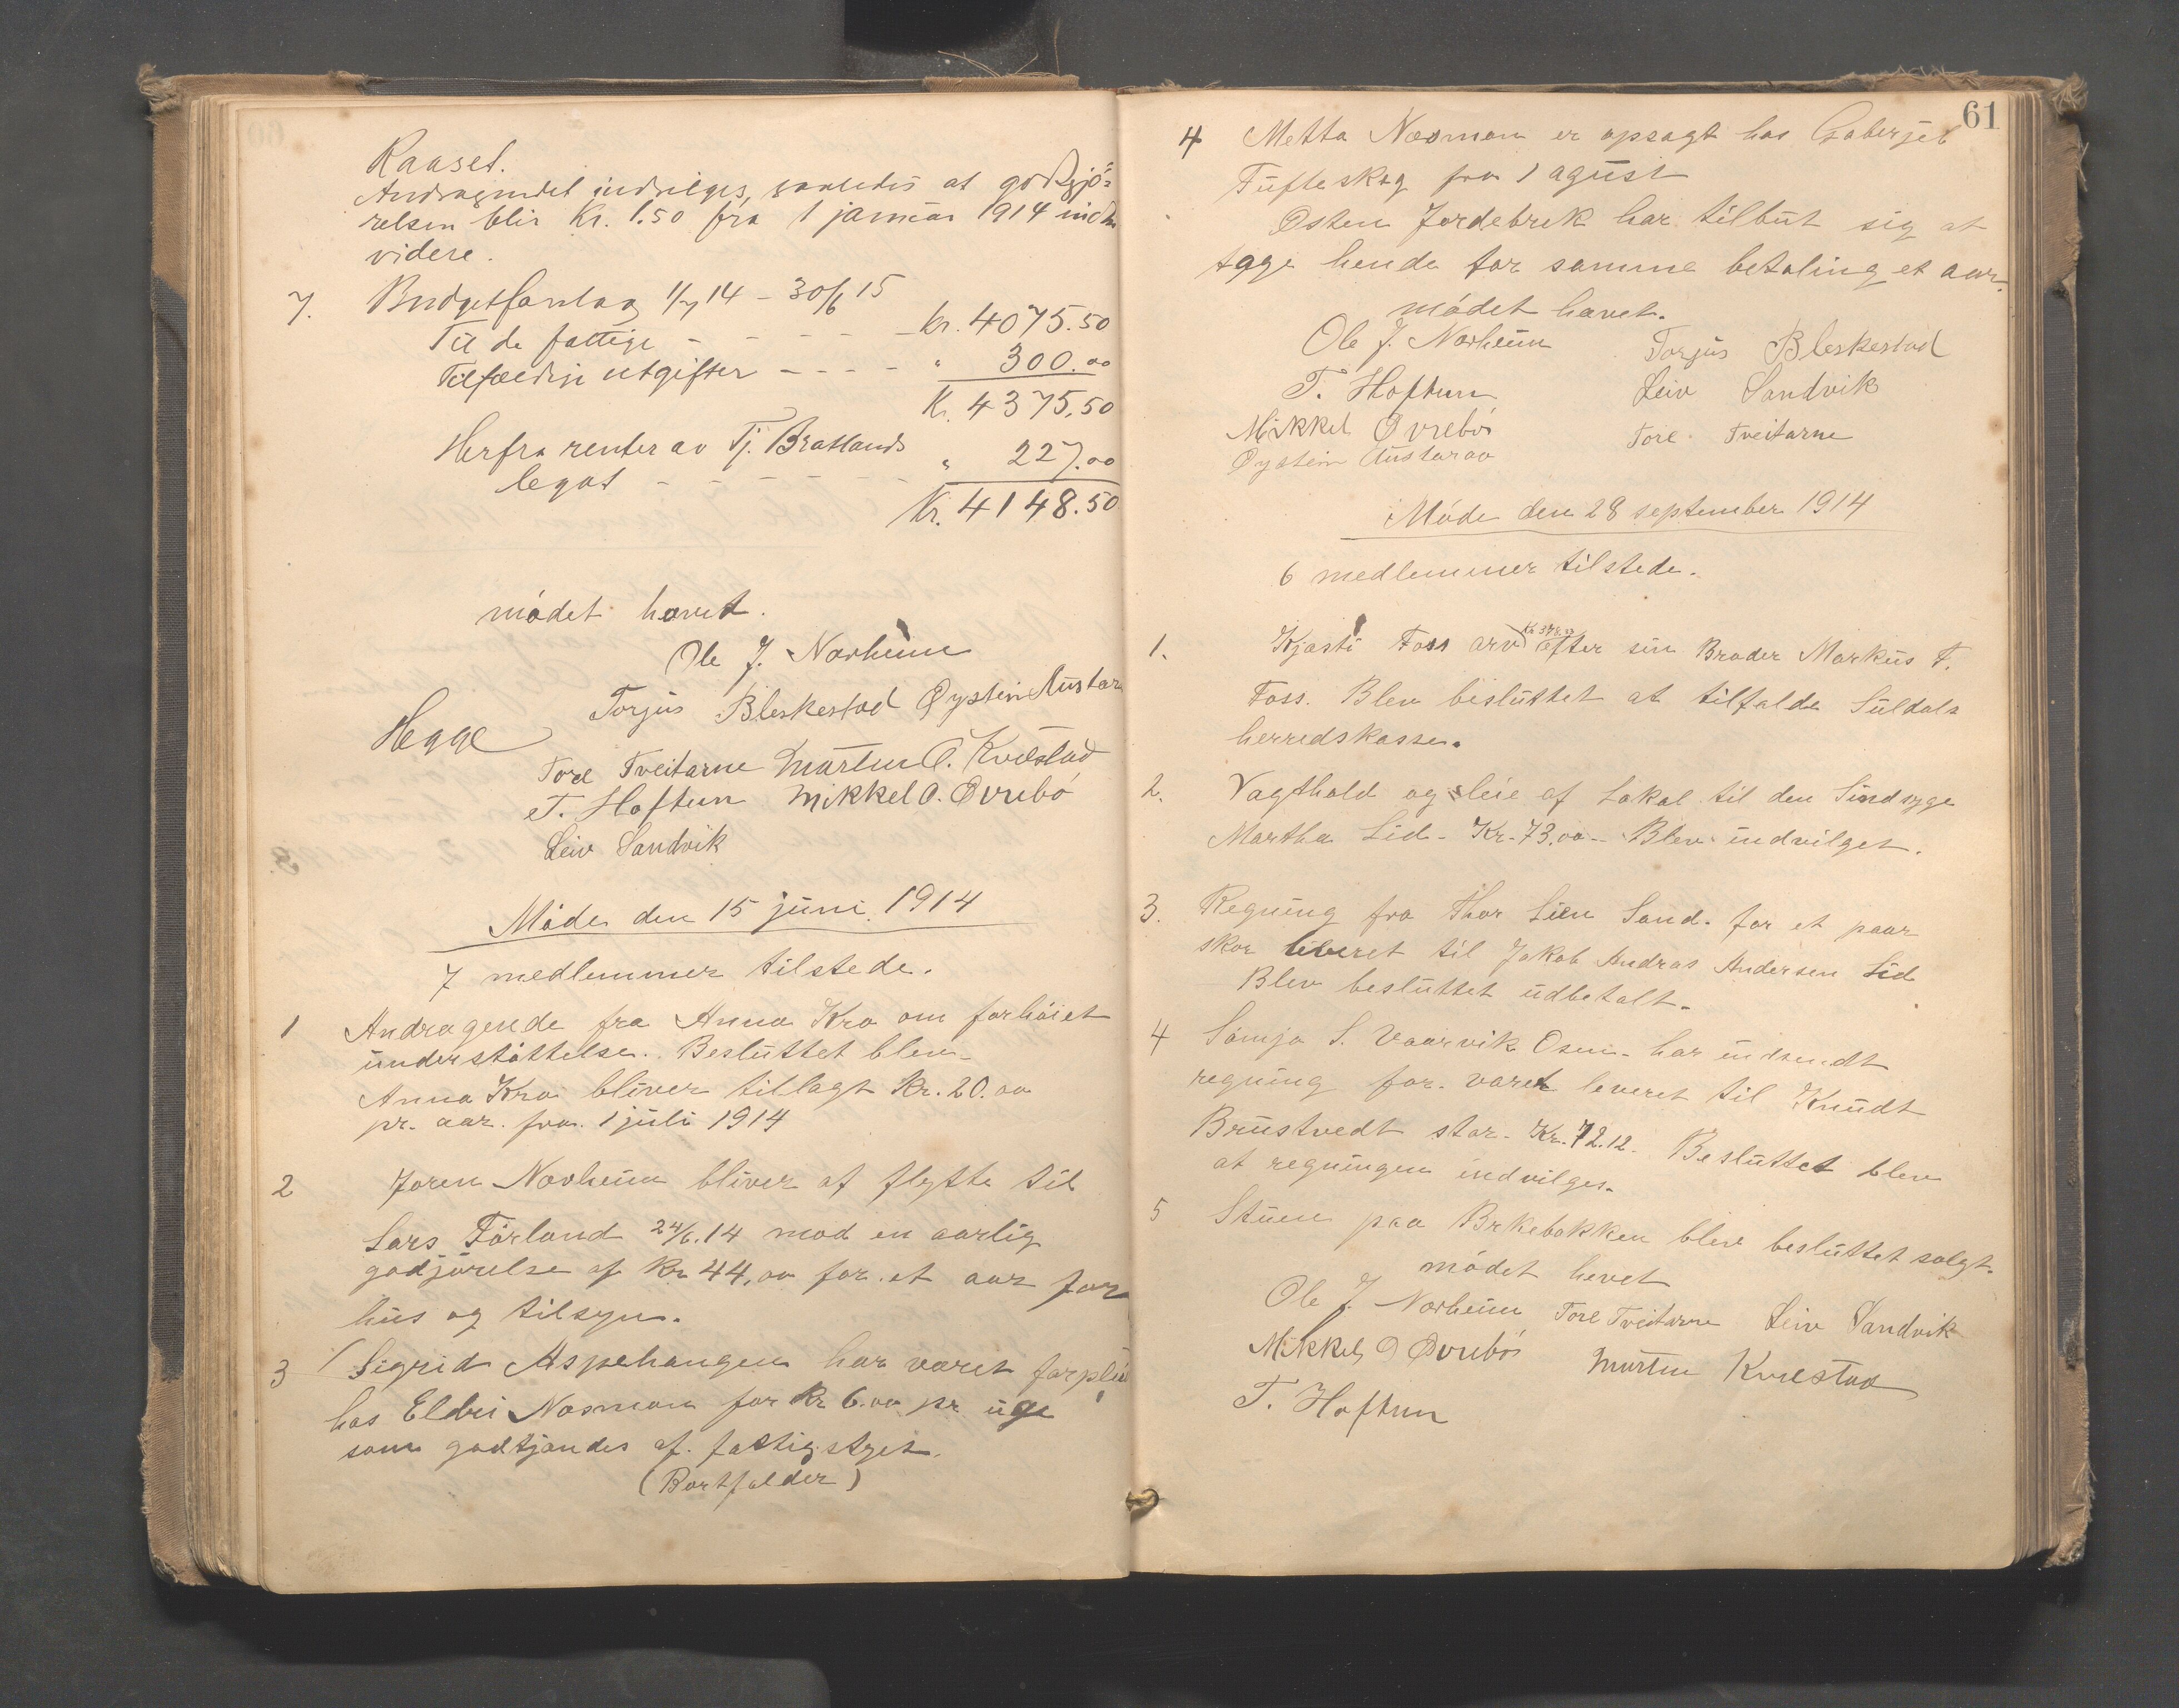 Raaset.
Andragendet indvilges, saaledes at godtgjö-
relsen blir Kr. 1.50 fra 1 januar 1914 indtil
videre.
7. Budgetforslag 1/7 14 - 30/6 15
Til de fattige - - - - - Kr. 4075.50
Tilfældige utgifter - - - - " 300.00
Kr. 4375.50
Herfra renter av Tj. Bratlands
legat - - - - - - " 227.00
Kr. 4148.50
mödet hævet.
Ole J. Norheim
Torjus Bleskestad Øystein Austaraa
Hegge
Tore Tveitarne Martin O. Kvæstad
T. Hoftun Mikkel O. Øvrebö
Leiv Sandvik
Möde den 15 juni 1914
7 medlemmer tilstede.
1 Andragende fra Anna Kro om forhöiet
understöttelse. Besluttet blev
Anna Kro bliver tillagt Kr. 20.00
pr. aar. fra. 1 juli 1914
2 Joren Norheim bliver at flytte til
Lars Förland 24/6.14 mod en aarlig
godjörelse af Kr 44,00 for et aar for
hus og tilsyn.
3 Sigrid Aspehaugen har været forplei
hos Eldri Næsman for Kr 6.00 pr. uge
som godtjændes af. fattigstyet.
(Bortfalder)
61
4 Metta Næsman er opsagt hos Gaberjel
Tufteskog fra 1 agust
Østen Jordebrek har tilbut sig at
tage hende for samme betaling et aar.
mödet hævet.
Ole J. Norheim Torjus Bleskestad
T. Hoftun Leiv Sandvik
Mikkel Øvrebö Tore Tveitarne
Øystein Austaraa
Möde den 28 september 1914
6 medlemmer tilstede.
1. Kjasti Foss arv efter sin Broder Markus T.
Foss. Blev besluttet at tilfalde Suldals
herredskasse.
2. Vagthold og leie af Lokal til den Sindsyge
Martha Lid - Kr. 73.00 - Blev indvilget.
3. Regning fra Thor Lien Sand. for et paar
skor leveret til Jakob Andras Andersen Lid
Blev besluttet udbetalt.
4 Samja S. Vaarvik Osen - har indsendt
regning for. varer leveret til Knudt
Brustvedt stor. Kr. 72.12. Besluttet blev
at regningen indvilges.
5 Stuen paa Brkebakken blev besluttet solgt.
mödet hevet
Ole J. Norheim Tore Tveitarne Leiv Sandvik
Mikkel O Øvrebö Martin Kvæstad
T. Hoftun